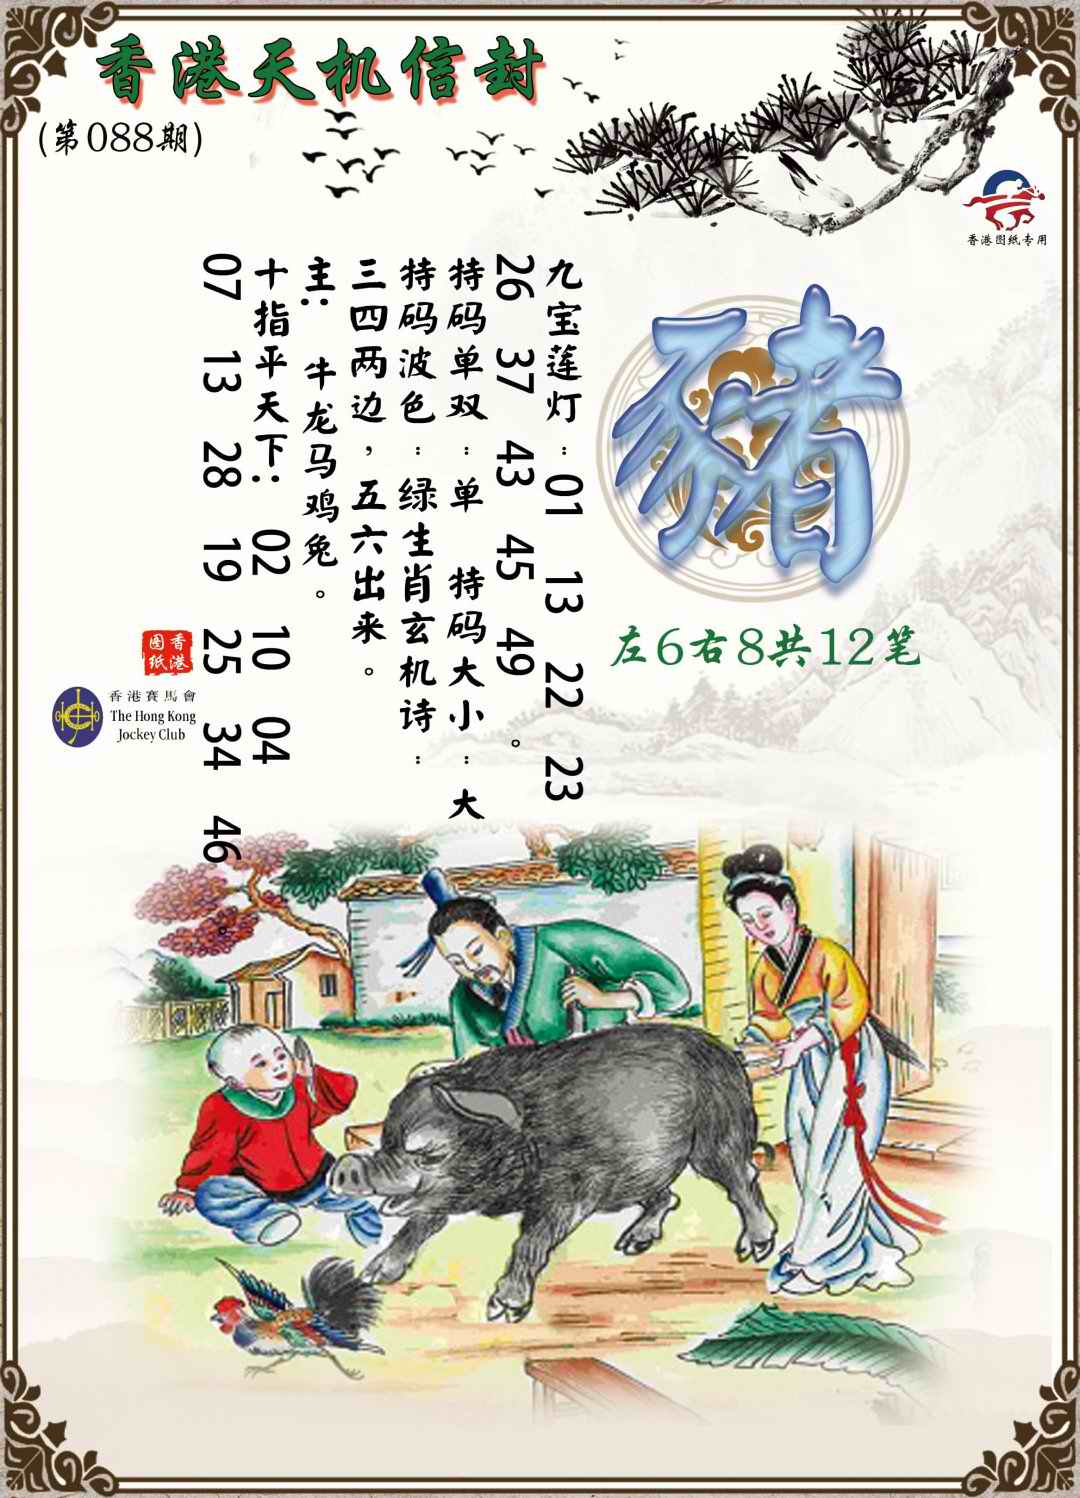 香港天机信封
(第088期)
香港图纸专用
豬
左6右8共12笔
九宝莲灯：01 13 22 23
26 37 43 45 49。
特码单双：单 特码大小：大
特码波色：绿生肖玄机诗：
三四两边，五六出来。
主： 牛龙马鸡兔。
十指平天下： 02 10 04
07 13 28 19 25 34 46。
香港图纸
香港賽馬會
The Hong Kong
Jockey Club